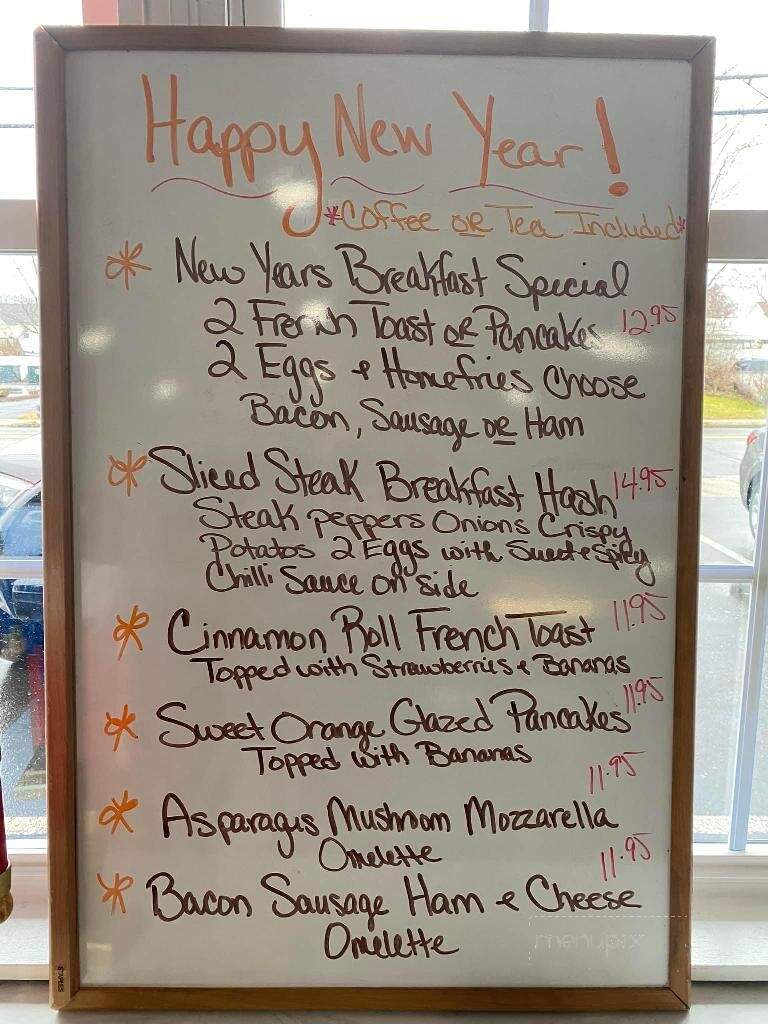 Happy New Year!
*Coffee or Tea Included*
New Years Breakfast Special
2 French Toast or Pancakes 12.95
2 Eggs + Homefries Choose
Bacon, Sausage or Ham
Sliced Steak Breakfast Hash 14.95
Steak peppers Onions Crispy
Potatos 2 Eggs with Sweet + Spicy
Chilli Sauce on side
Cinnamon Roll French Toast 11.95
Topped with Strawberries + Bananas
Sweet Orange Glazed Pancakes 11.95
Topped with Bananas
Asparagus Mushroom Mozzarella 11.95
Omelette
Bacon Sausage Ham + Cheese 11.95
Omelette
menupix
STAPLES